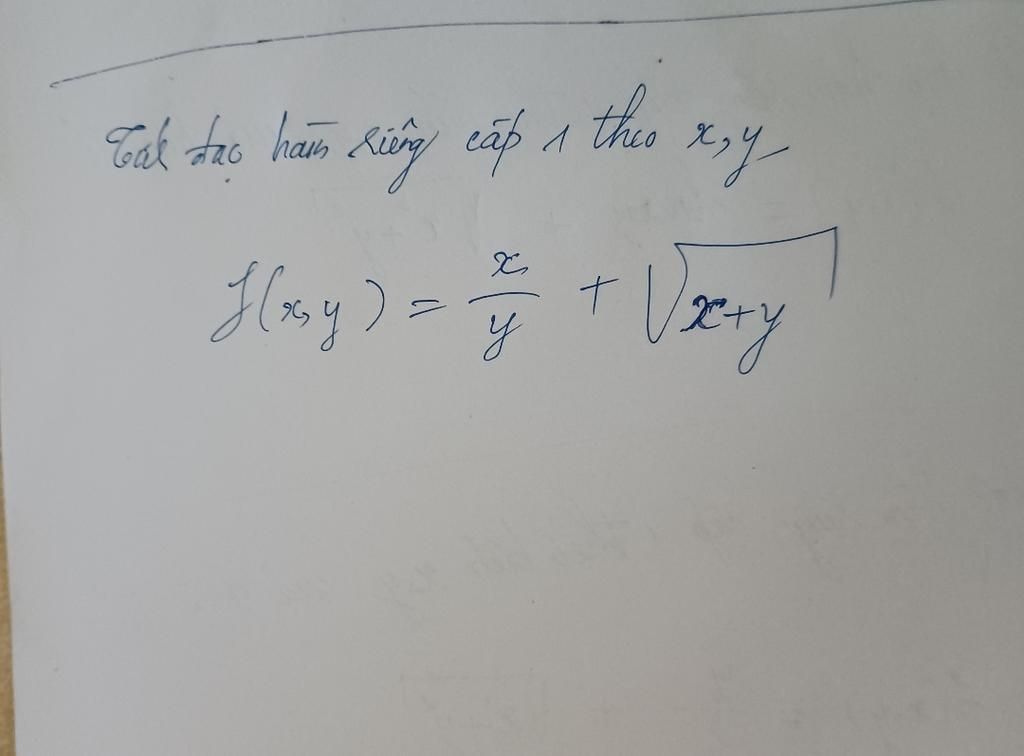 đạo hàm riêng cấp 1 theo x, y
f(x, y) = x/y + √(x+y)